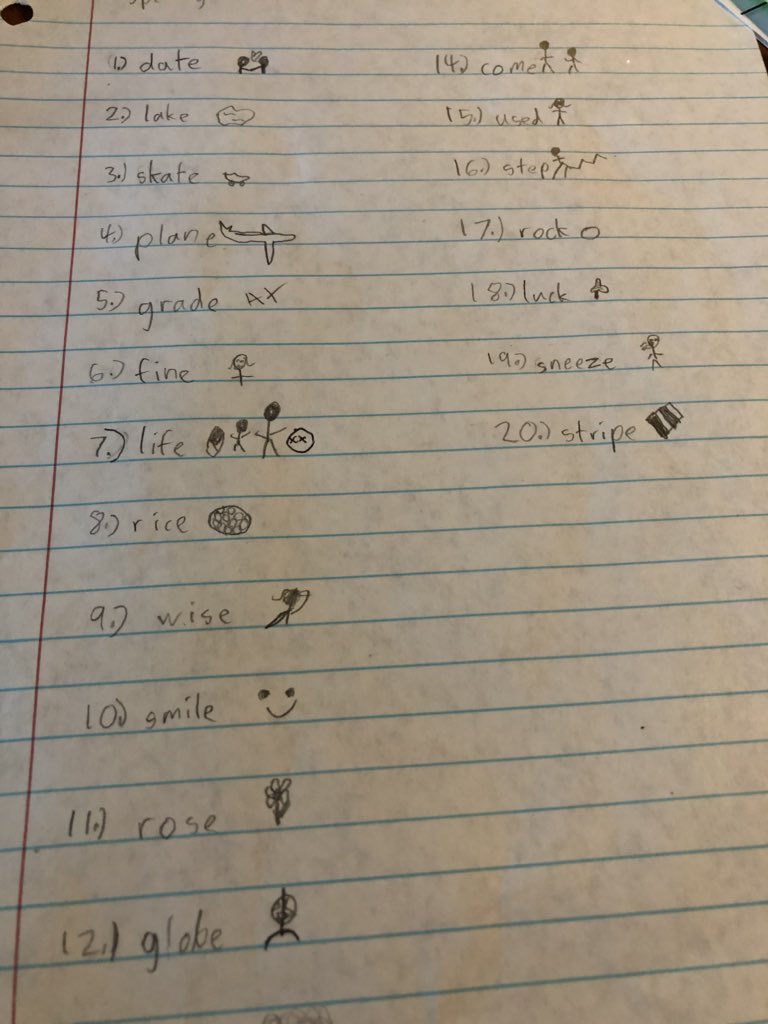 1.) date
2.) lake
3.) skate
4.) plane
5.) grade A+
6.) fine
7.) life
8.) rice
9.) wise
10.) smile
11.) rose
12.) globe
14.) come
15.) used
16.) step
17.) rock
18.) luck
19.) sneeze
20.) stripe